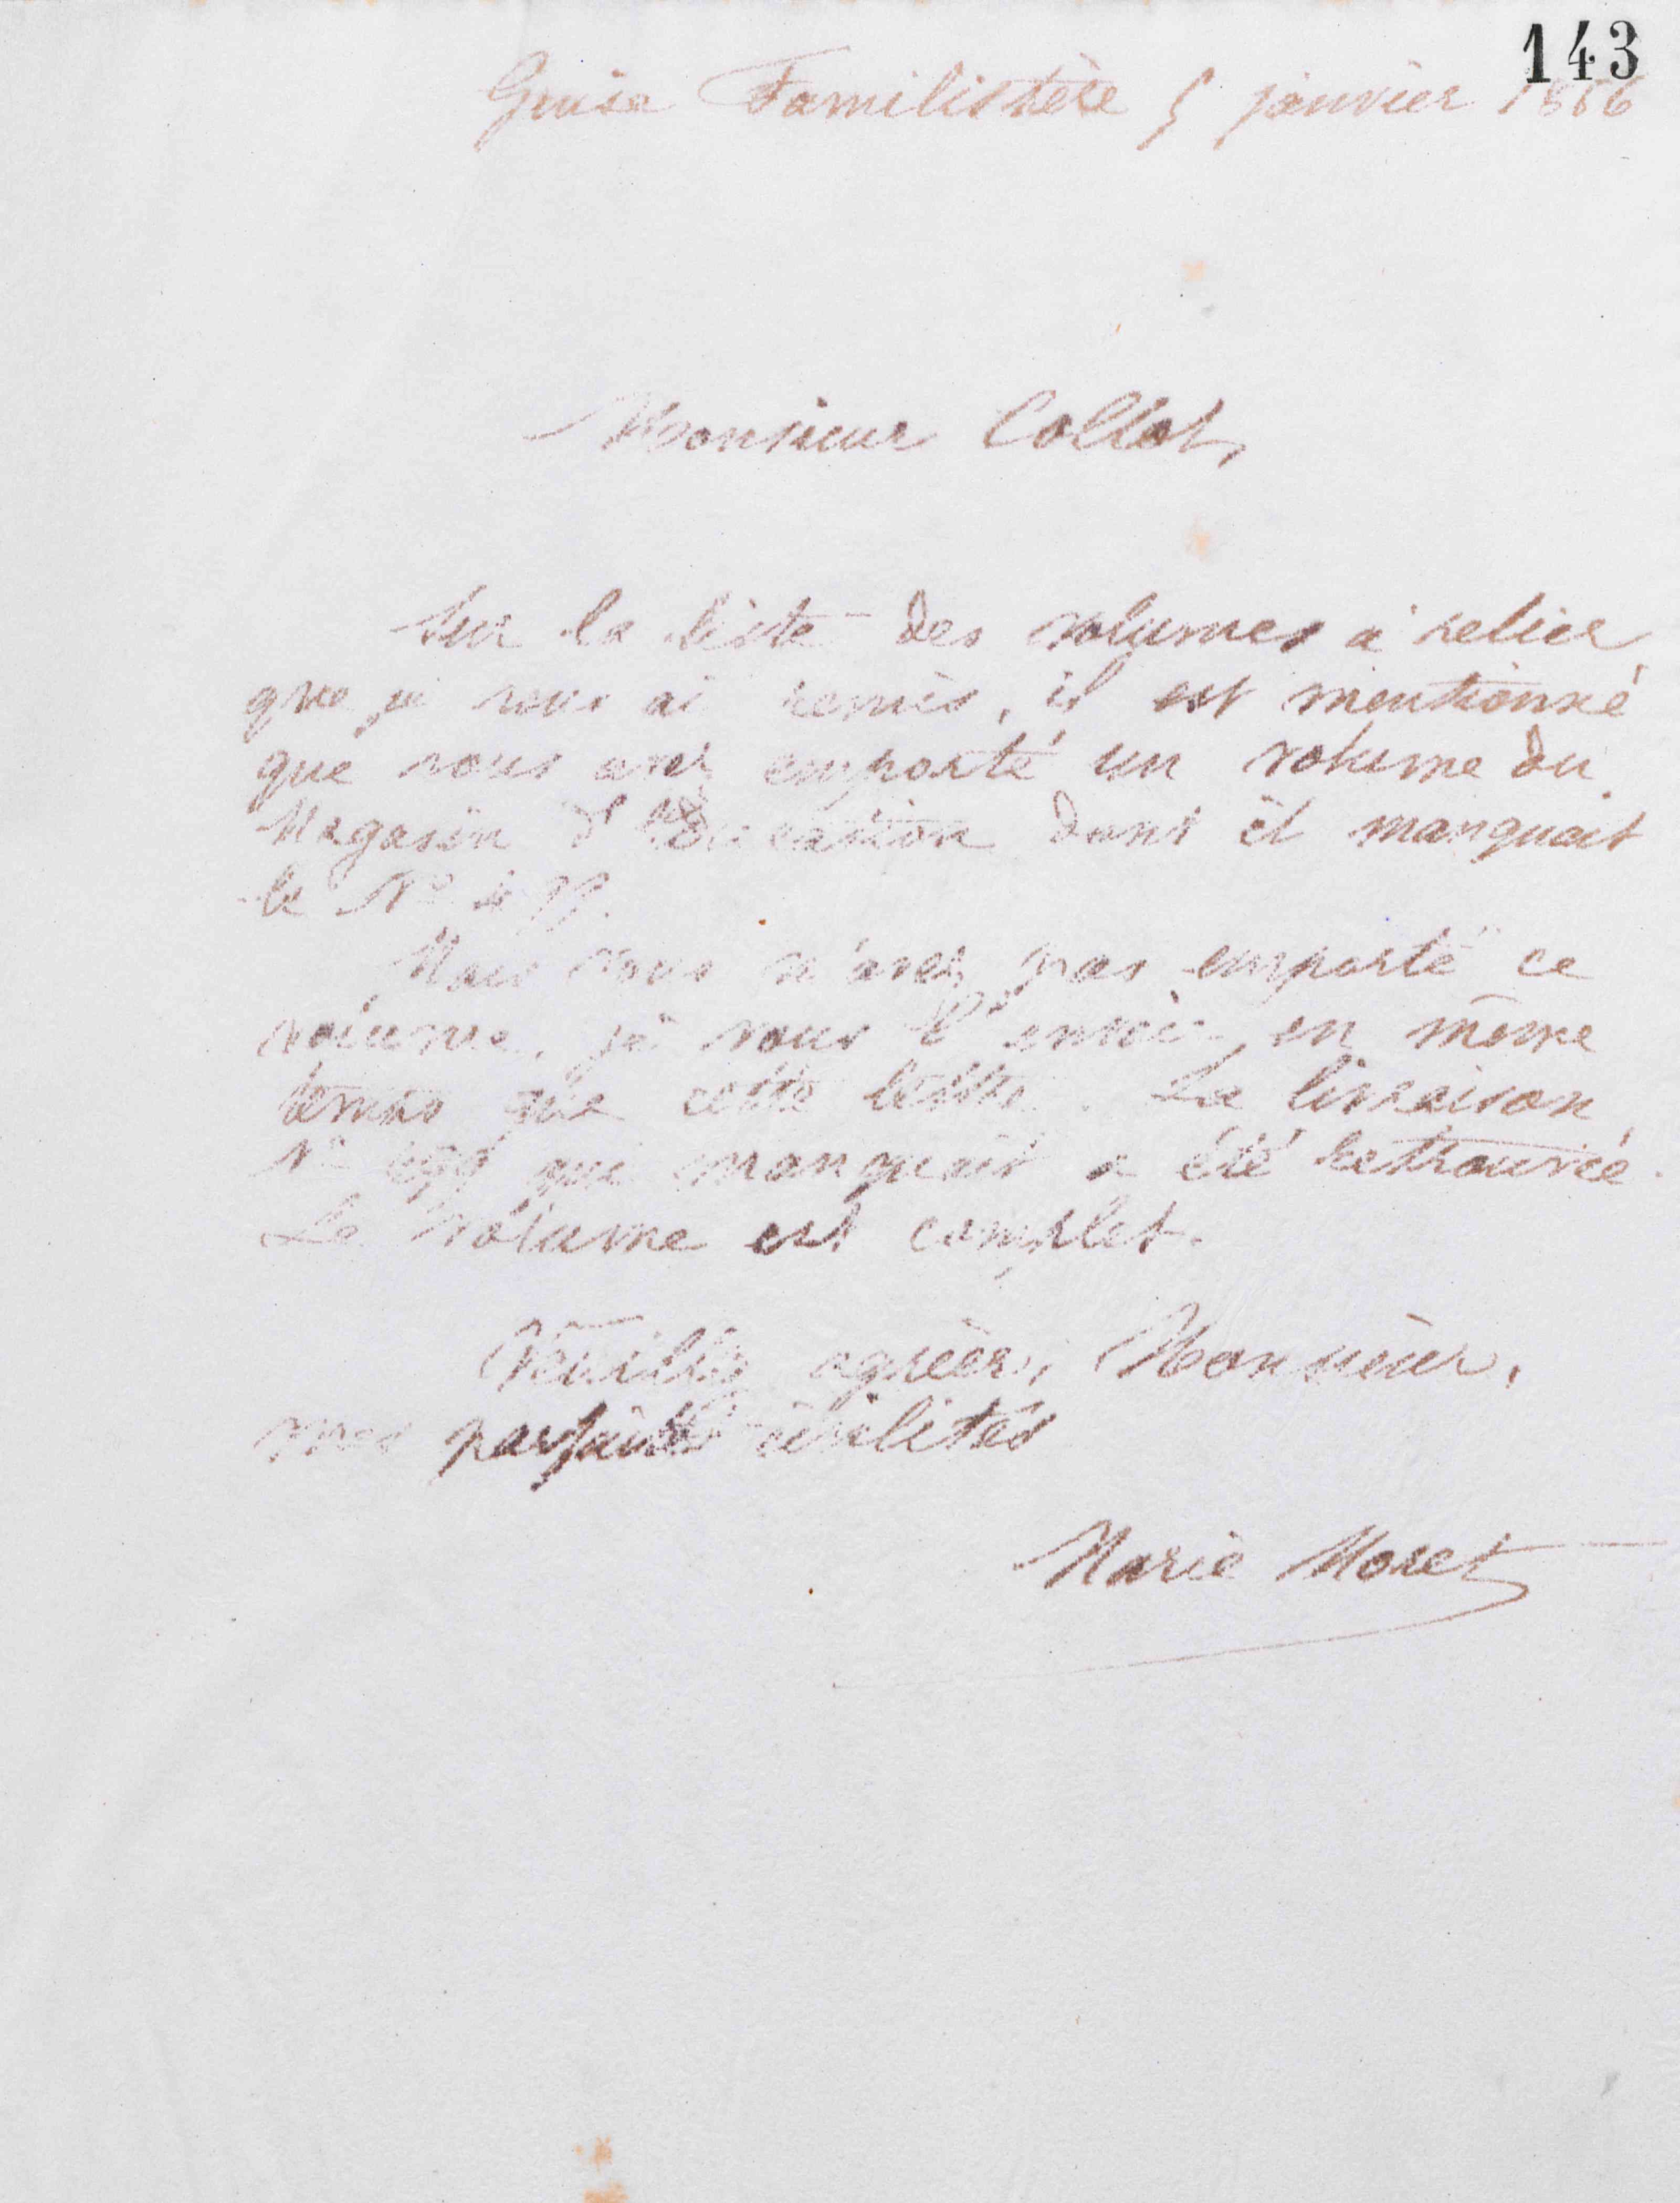 143
Guise Familistère 5 janvier 1886
Monsieur Collot,
Sur la liste des volumes à relier
que je vous ai remis, il est mentionné
que vous avez emporté un volume du
Magasin d'Education dont il manquait
le Nº
Mais vous n'avez pas emporté ce
volume, je vous l'envoie en même
temps que cette lettre. La livraison
Nº qui manquait a été retrouvée.
Le volume est complet.
Veuillez agréer, Monsieur,
mes parfaites civilités
Marie Moret